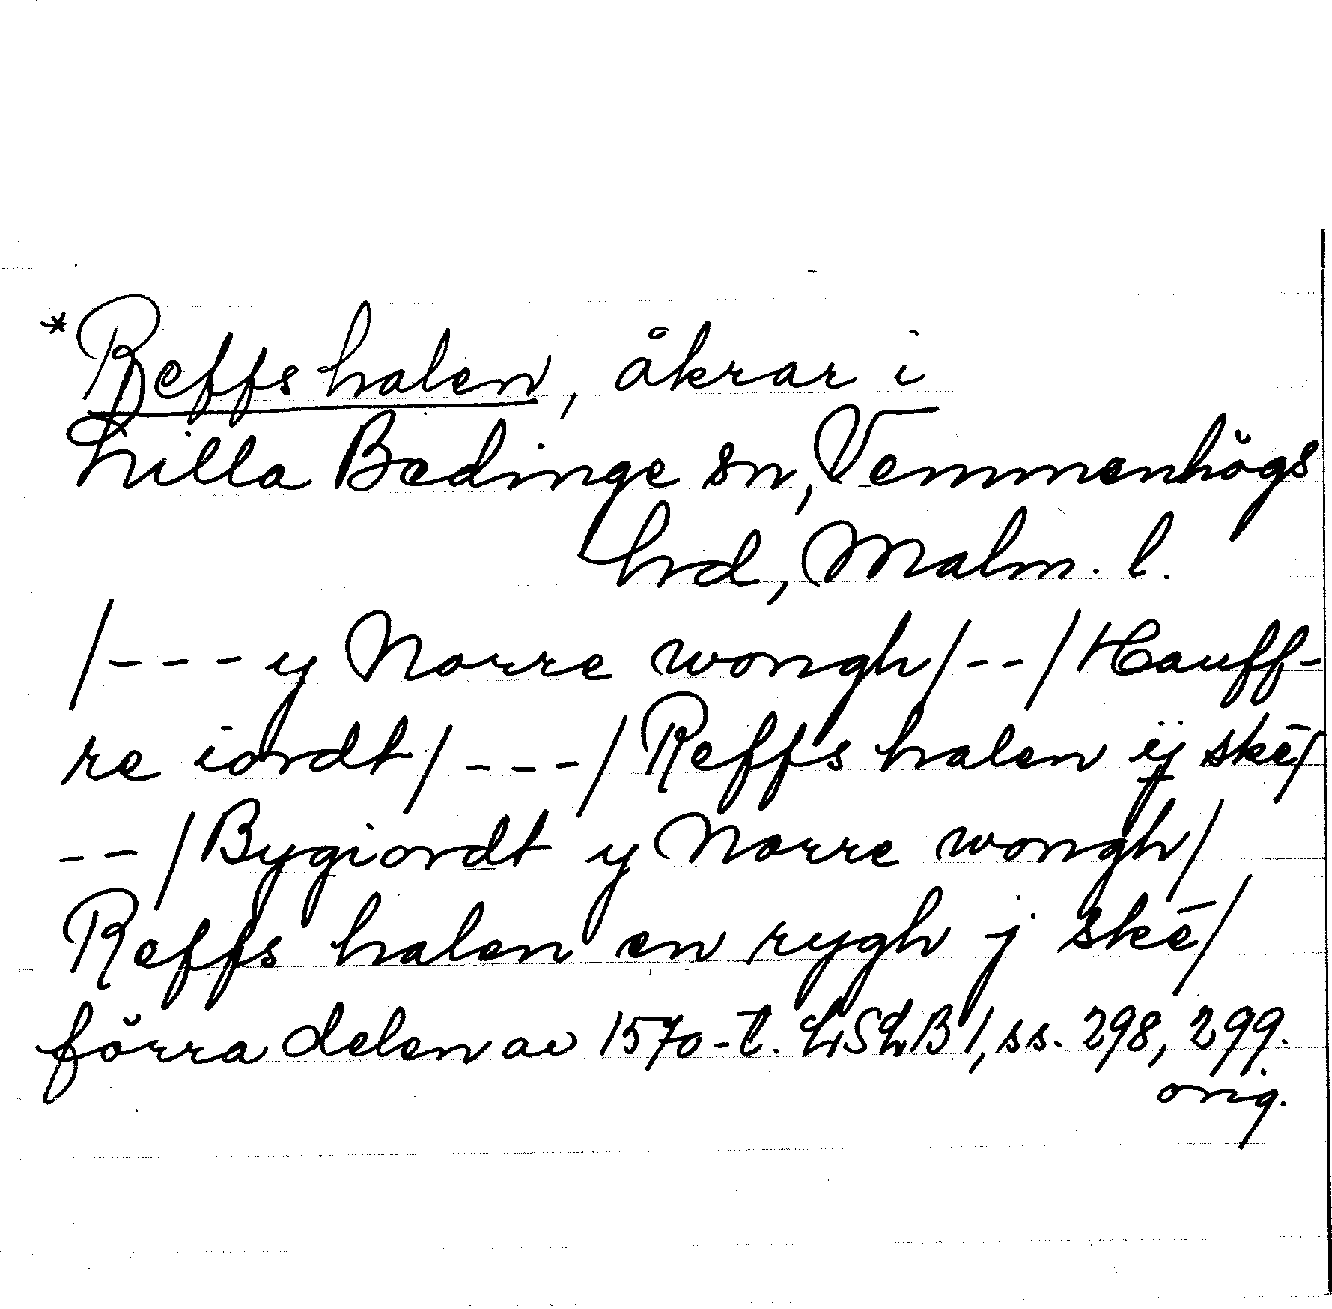 *Reffs halen, åkrar i
Lilla Bedinge sn, Vemmenhögs
hrd, Malm. l.
/--- y Norre wongh/--/Hauff-
re iordt/---/Reffs halen ij skē/
--/Bygiordt y Norre wongh/
Reffs halen en rygh j skē/
förra delen av 1570-t. LSLB 1, ss. 298, 299.
orig.